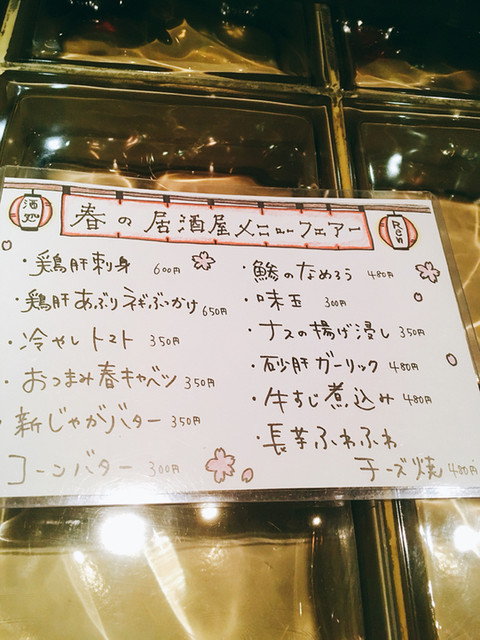 春の居酒屋メニューフェアー
・鶏肝刺身 600円
・鶏肝あぶりネギぶっかけ 650円
・冷やしトマト 350円
・おつまみ春キャベツ 350円
・新じゃがバター 350円
コーンバター 300円
・鯵のなめろう 480円
・味玉 300円
・ナスの揚げ浸し 350円
・砂肝ガーリック 480円
・牛すじ煮込み 480円
・長芋ふわふわ
チーズ焼 480円